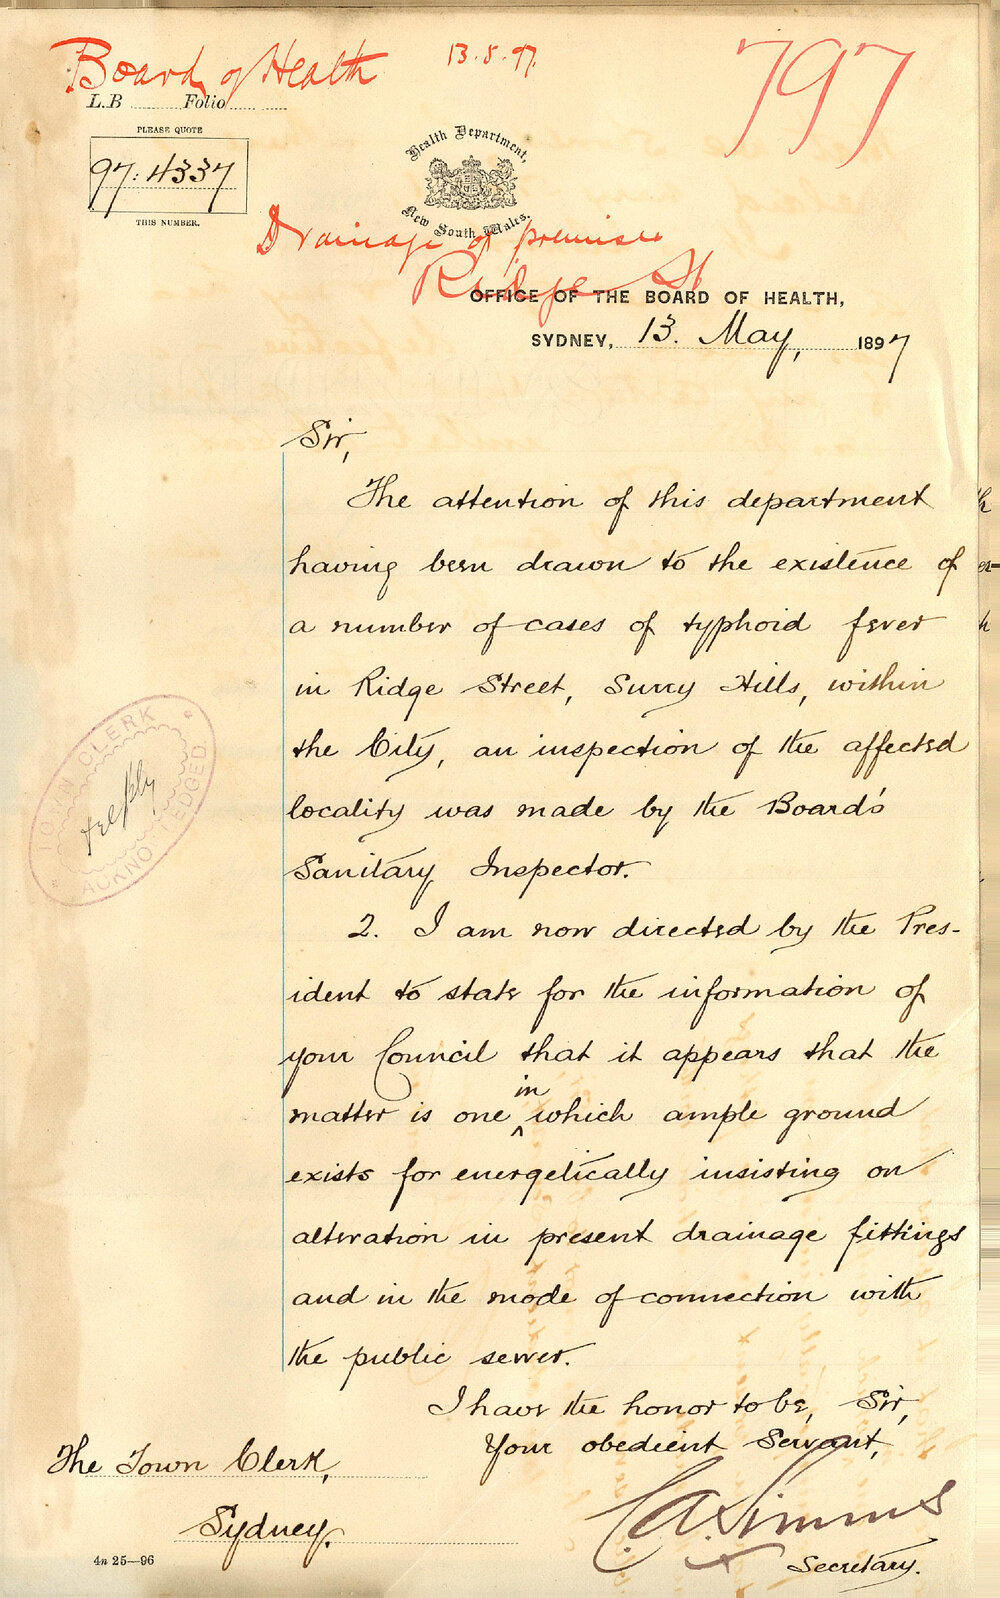 Board of Health
13.5.97.
797
L.B Folio
PLEASE QUOTE
97:4337
THIS NUMBER.
Health Department,
New South Wales.
Drainage of premises
Ridge St
OFFICE OF THE BOARD OF HEALTH,
SYDNEY, 13. May, 1897
Sir,
The attention of this department
having been drawn to the existence of
a number of cases of typhoid fever
in Ridge Street, Surry Hills, within
the City, an inspection of the affected
locality was made by the Board's
Sanitary Inspector.
2. I am now directed by the Pres-
ident to state for the information of
your Council that it appears that the
in
matter is one ^ which ample ground
exists for energetically insisting on
alteration in present drainage fittings
and in the mode of connection with
the public sewer.
I have the honor to be, Sir,
Your obedient Servant,
C. A. Simms
Secretary.
The Town Clerk,
Sydney.
4n 25—96
TOWN CLERK
ACKNOWLEDGED